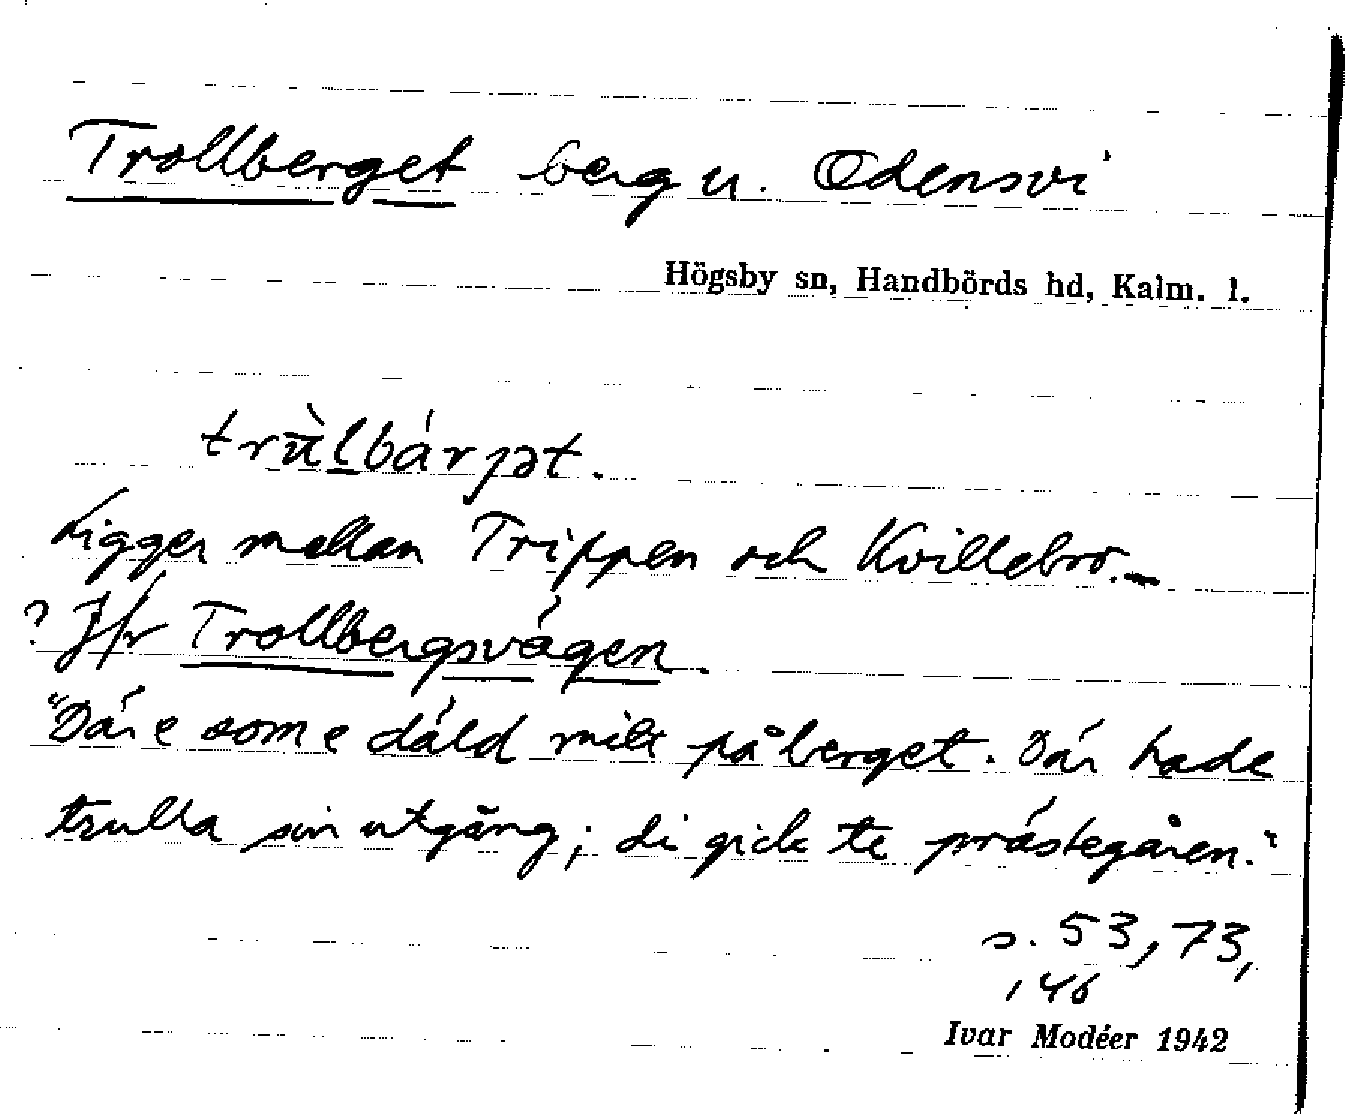 Trollberget berg u. Odensvi
Högsby sn, Handbörds hd, Kalm. l.
trùl̠bárjət.
Ligger mellan Trippen och Kvillebro. –
? Jfr Trollbergsvägen.
"Där e som e däld mitt på berget. Där hade
trulla sin utgång; di gick te prästegåren."
s. 53, 73,
146
Ivar Modéer 1942